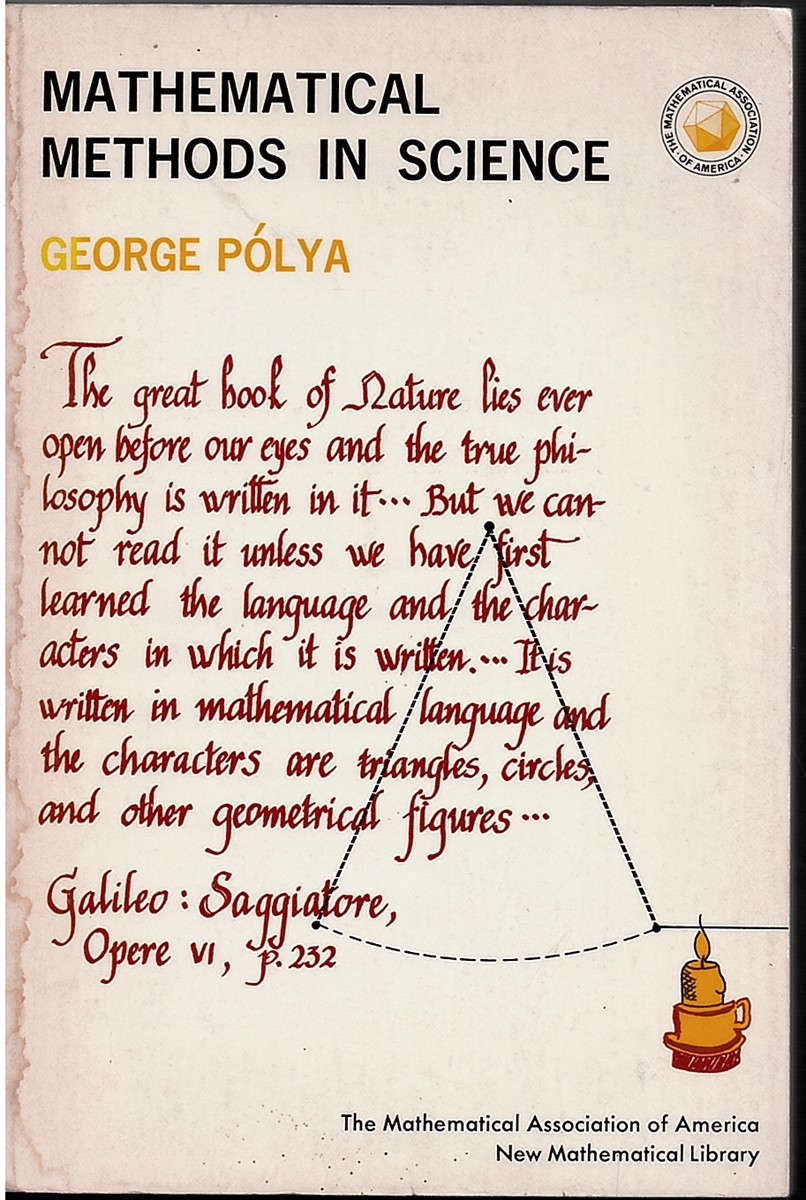 MATHEMATICAL
METHODS IN SCIENCE
THE MATHEMATICAL ASSOCIATION · OF AMERICA ·
GEORGE PÓLYA
The great book of Nature lies ever
open before our eyes and the true phi-
losophy is written in it... But we can-
not read it unless we have first
learned the language and the char-
acters in which it is written.... It is
written in mathematical language and
the characters are triangles, circles,
and other geometrical figures...
Galileo : Saggiatore,
Opere VI, p. 232
The Mathematical Association of America
New Mathematical Library